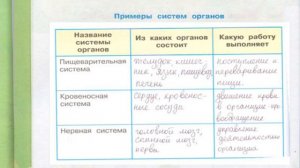 Примеры систем органов
Название
системы
органов
Из каких органов
состоит
Какую работу
выполняет
Пищеварительная
система
желудок кишеч
ник, язык, пищевод
печень
поступление и
переваривание
пищи.
Кровеносная
система
сердце, кровенос-
ные сосуды
движение крови
в организме-кр
вообращение
Нервная система
головной мозг,
спинной мозг,
нервы
управление
деятельностью
организма